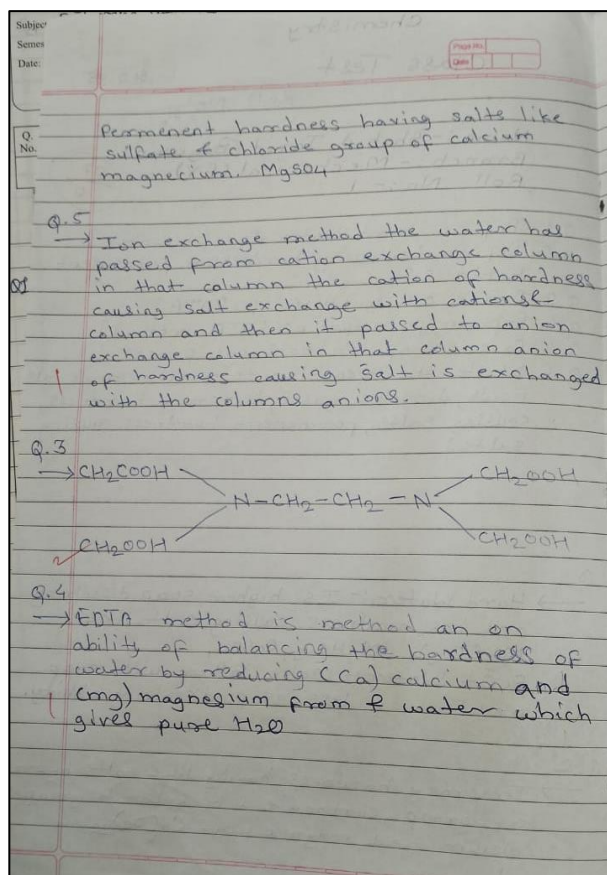 Subject
Semes
Date:
Page No.
Date
Q.
No.
Permenent hardness having salts like
sulfate & chloride group of calcium
magnecium. MgSO4
Q.5
→ Ion exchange method the water has
passed from cation exchange column
Q1
in that column the cation of hardness
causing salt exchange with cations&
column and then it passed to anion
exchange column in that column anion
1
of hardness causing salt is exchanged
with the columns anions.
Q.3
→ CH2COOH CH2OOH
N-CH2-CH2-N
CH2OOH CH2OOH
2
Q.4
→ EDTA method is method an on
ability of balancing the hardness of
water by reducing (Ca) calcium and
1
(mg) magnesium from & water which
gives pure H2O